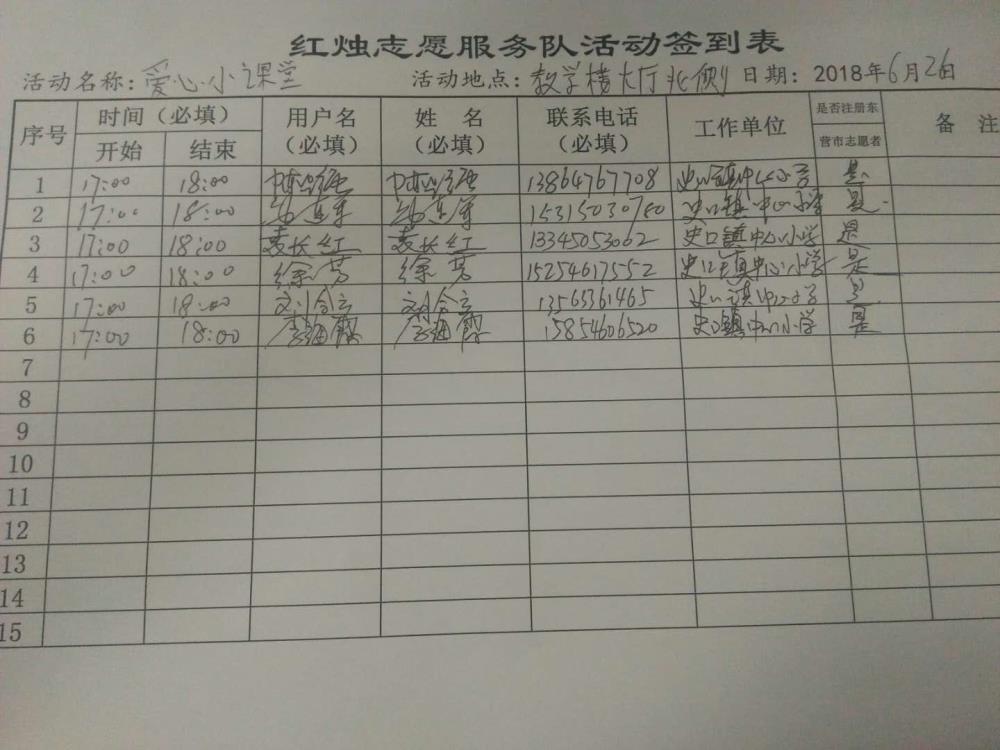 红烛志愿服务队活动签到表
活动名称：爱心小课堂 活动地点：教学楼大厅北侧 日期：2018年6月26日
序号 时间（必填） 用户名（必填） 姓名（必填） 联系电话（必填） 工作单位 是否注册东营市志愿者 备注
开始 结束
1 17:00 18:00 13864767708 史口镇中心小学 是
2 17:00 18:00 15315030780 史口镇中心小学 是
3 17:00 18:00 袁长红 袁长红 13345053062 史口镇中心小学 是
4 17:00 18:00 徐芳 徐芳 15254617552 史口镇中心小学 是
5 17:00 18:00 13563361465 史口镇中心小学 是
6 17:00 18:00 李海霞 李海霞 15854606520 史口镇中心小学 是
7
8
9
10
11
12
13
14
15